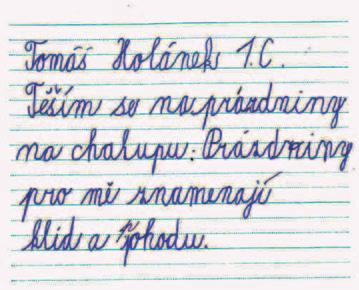 Tomáš Holánek 1.C.
Těším se na prázdniny
na chalupu. Prázdniny
pro mě znamenají
klid a pohodu.